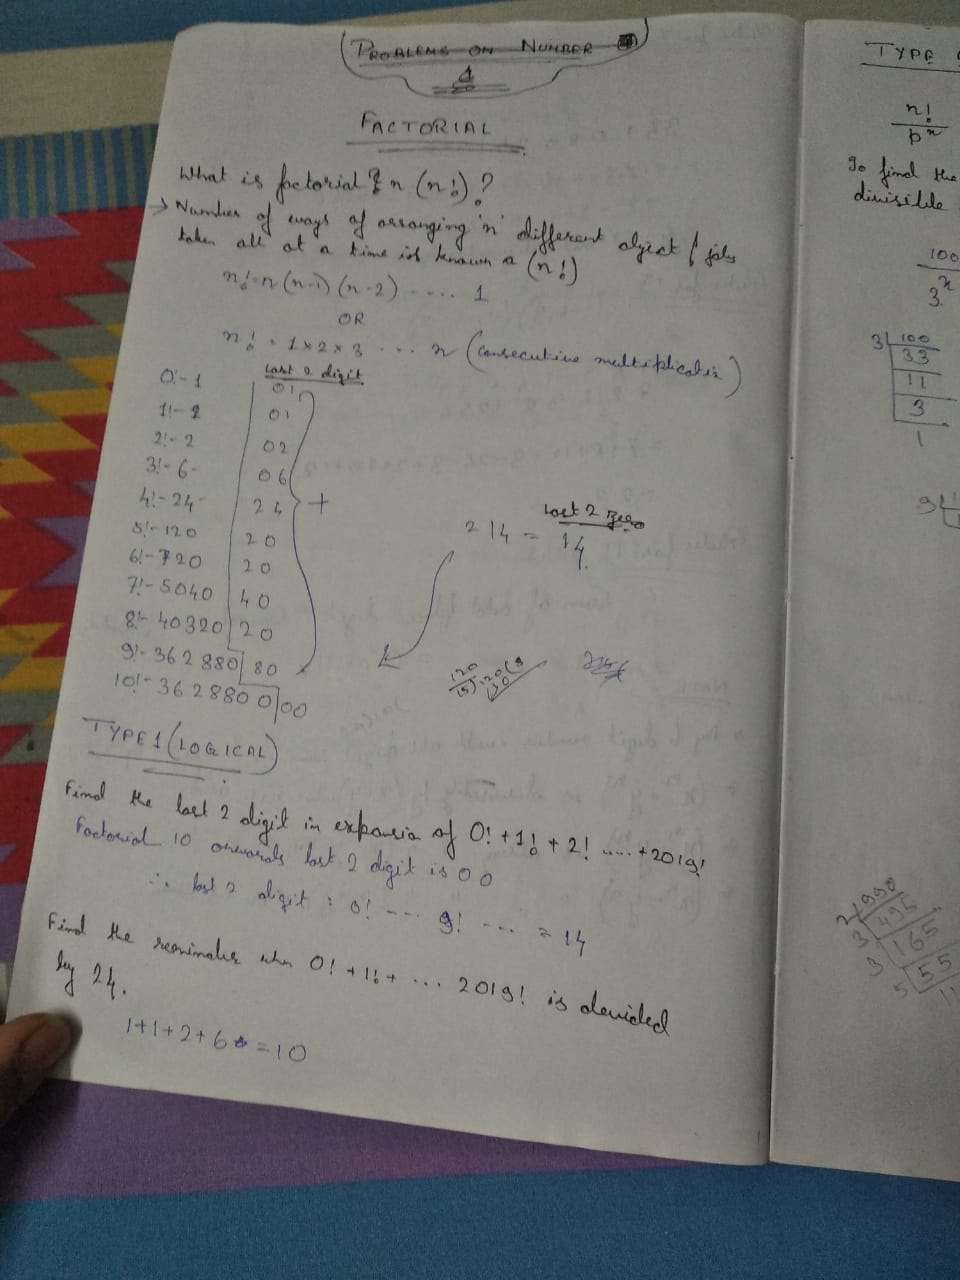 PROBLEMS ON NUMBER
FACTORIAL
What is factorial of n (n!)?
→ Number of ways of arranging 'n' different object / jobs
taken all at a time is known a (n!)
n! = n (n-1) (n-2) ---- 1
OR
n! = 1×2×3 ... n (consecutive multiplication)
last 2 digit
0!-1 01
1!-1 01
2!-2 02
3!-6- 06
4!-24- 24
5!-120 20
6!-720 20
7!-5040 40
8!- 40320 20
9!- 362880 80
10!- 3628800 00
+
214 = 14
Last 2 zero
TYPE 1 (LOGICAL)
Find the last 2 digit in expansion of 0! + 1! + 2! ..... + 2019!
Factorial 10 onwards last 2 digit is 00
∴ last 2 digit : 0! --- 9! --- = 14
Find the remainder when 0! + 1! + ... 2019! is devided
by 24.
1+1+2+6 = 10
TYPE
n!
p^x
To find the
divisible
100
3^x
3 100
33
11
3
1
2 990
3 495
3 165
5 55
11